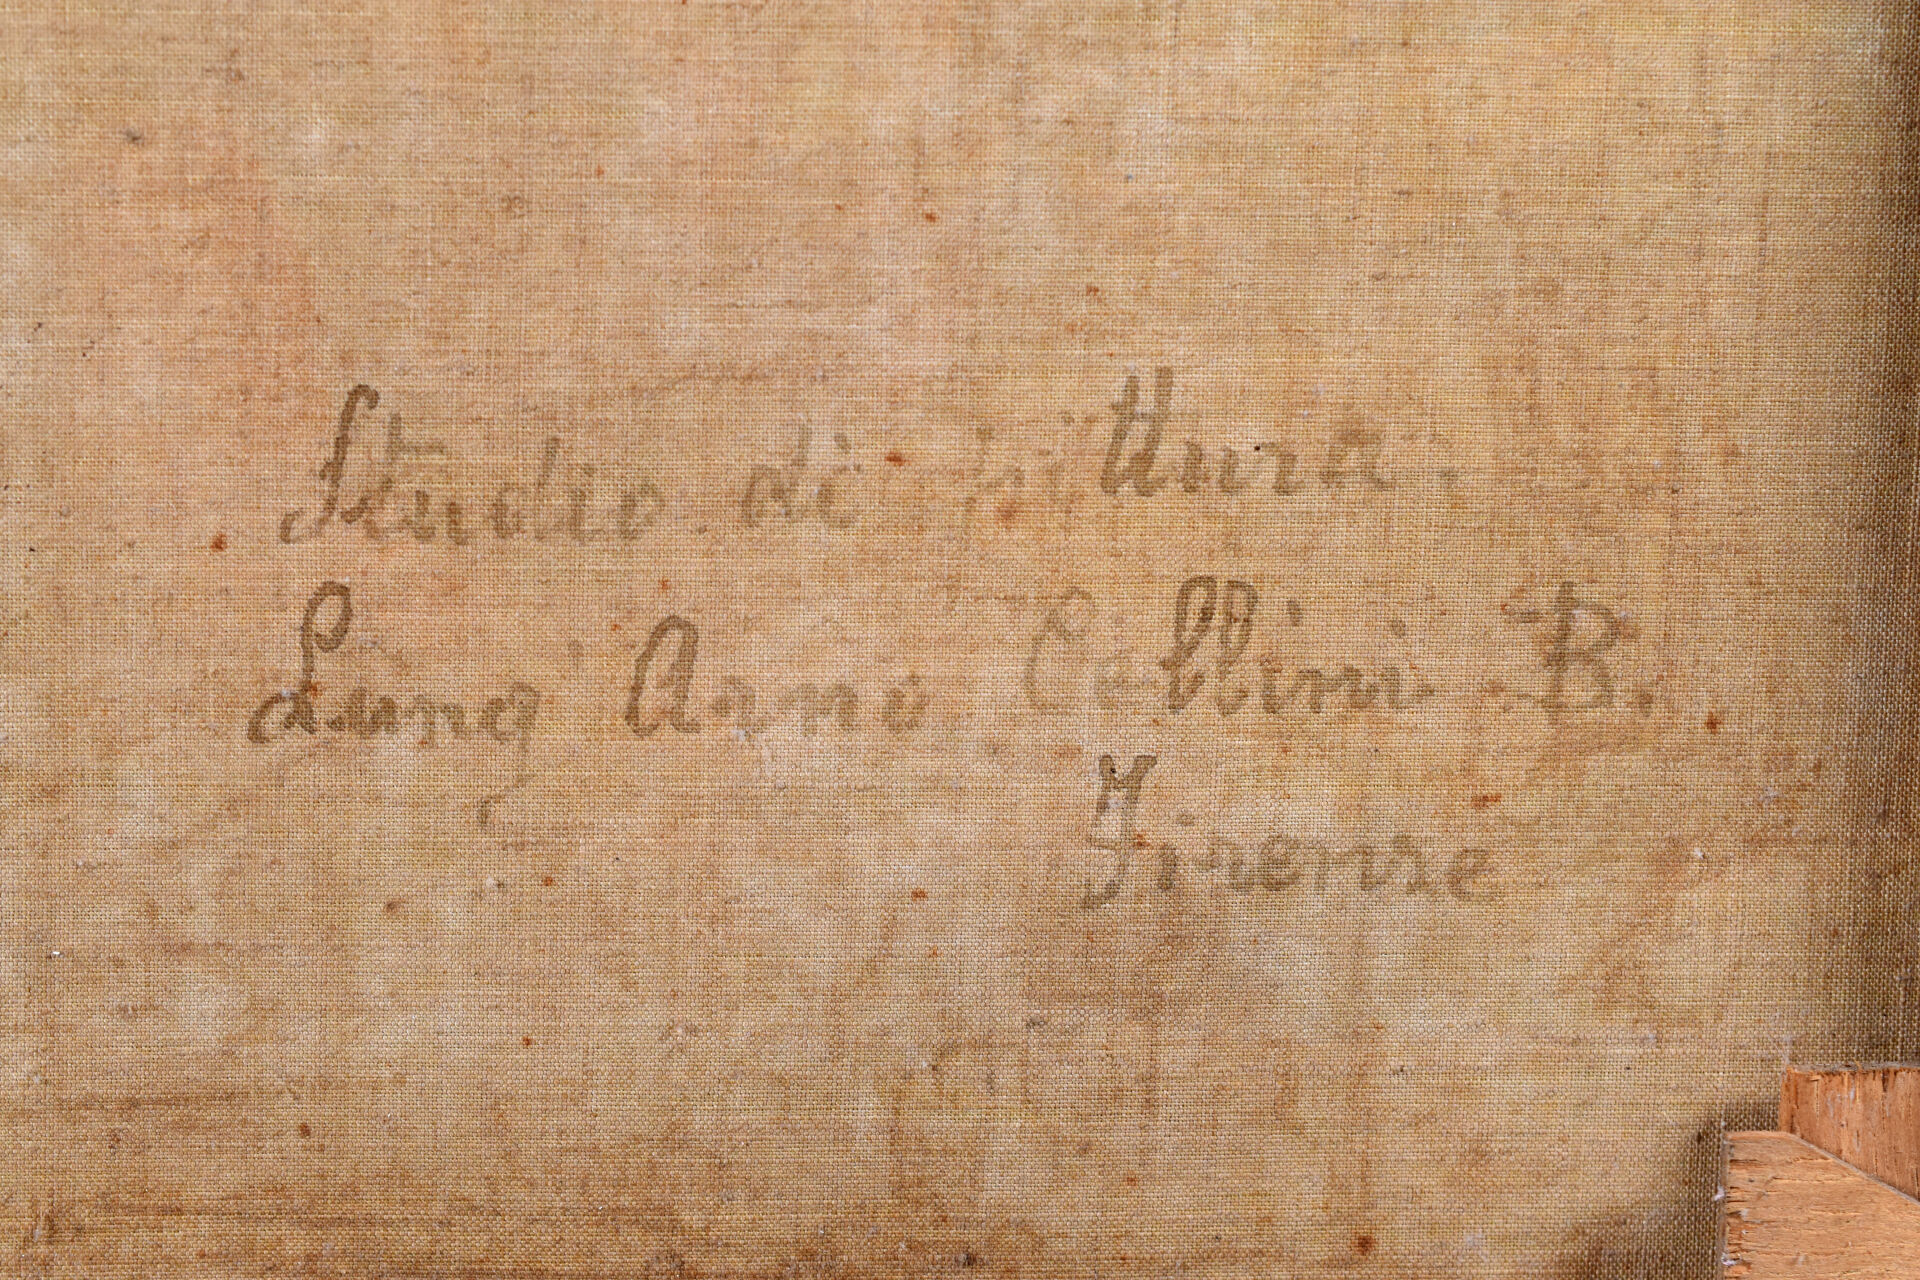 Studio di pittura.
Lung' Arno Cellini B.
Firenze